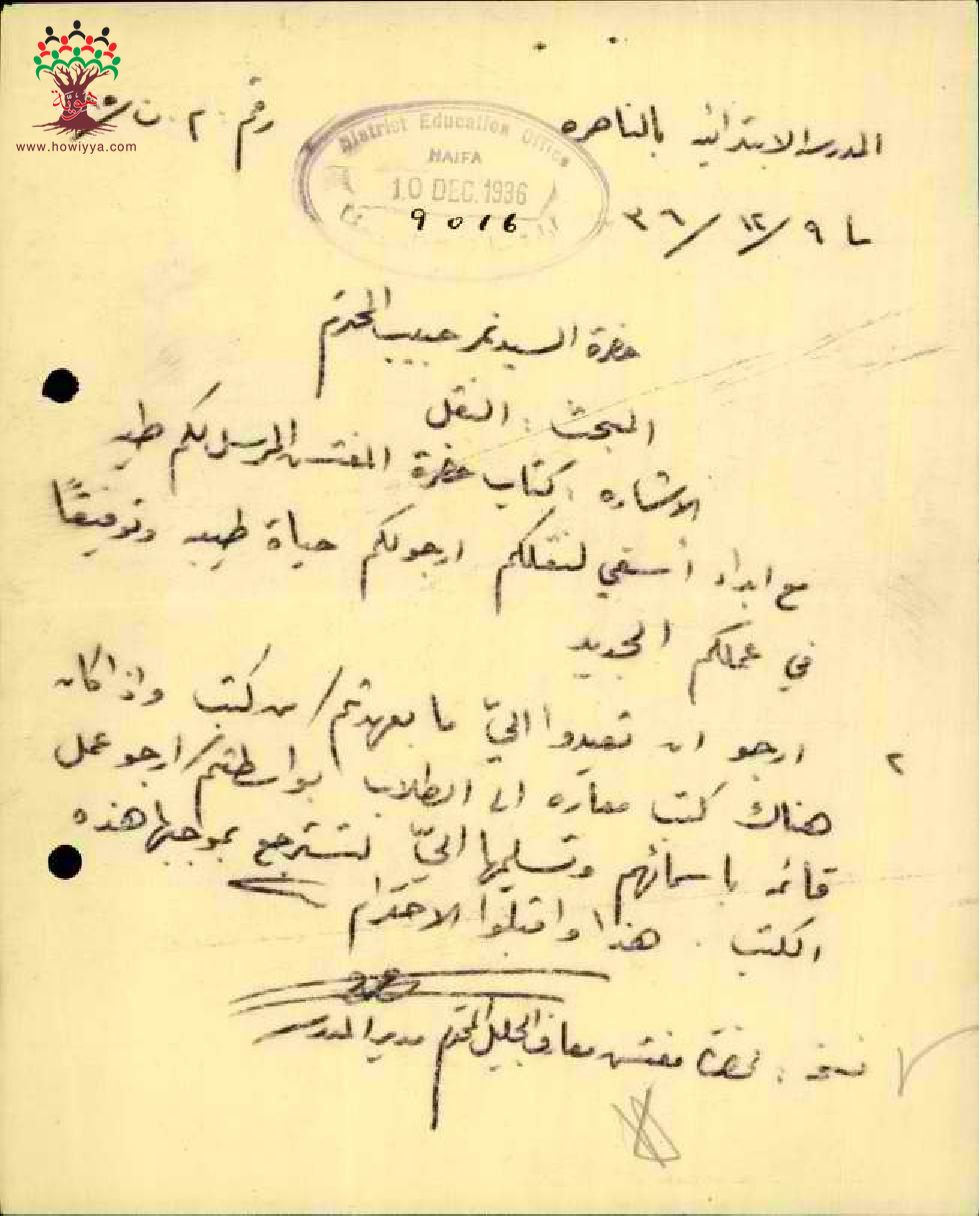 هوية
www.howiyya.com
المدرسه الابتدائيه بالناصره
رقم ٢. ن/
District Education Office
HAIFA
10 DEC. 1936
9016
نا ٩/١٢/٣٦
حضرة السيد نمر حبيب المحترم
البحث : النقل
الاشاره : كتاب حضرة المفتش المرسل لكم طيه
مع ابداء أسفي لنقلكم ارجو لكم حياة طيبه وتوفيقًا
في عملكم الجديد
٢ ارجو ان تعيدوا اليّ ما بعهدتكم من كتب واذا كان
هناك كتب معاره الى الطلاب بواسطتكم ارجو عمل
قائمه باسمائهم وتسليمها اليّ لتسترجع بموجبها هذه
الكتب . هذا واقبلوا الاحترام
مدير المدرسه
نسخه : لحضرة مفتش معارف الجليل المحترم